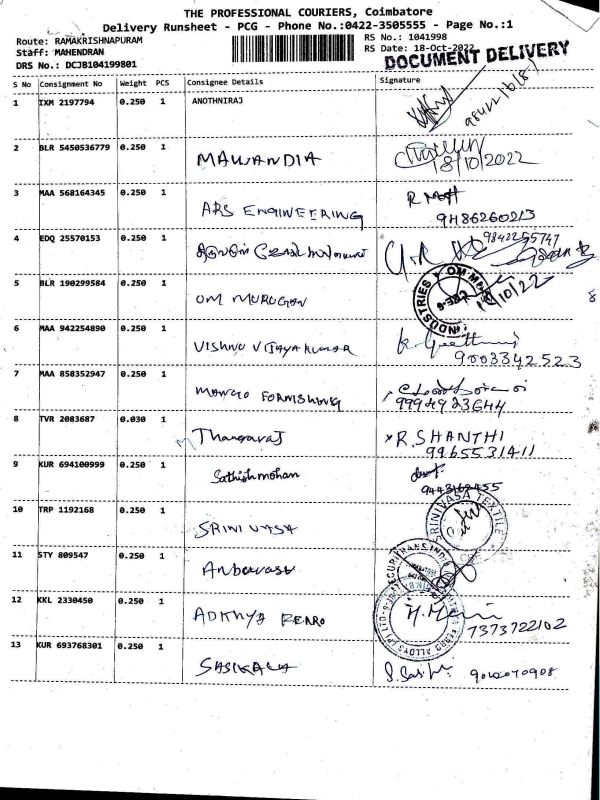 THE PROFESSIONAL COURIERS, Coimbatore
Delivery Runsheet - PCG - Phone No.:0422-3505555 - Page No.:1
Route: RAMAKRISHNAPURAM
RS No.: 1041998
Staff: MAHENDRAN
RS Date: 18-Oct-2022
DRS No.: DCJB104199801
DOCUMENT DELIVERY
S No Consignment No Weight PCS Consignee Details Signature
1 IXM 2197794 0.250 1 ANOTHNIRAJ
2 BLR 5450536779 0.250 1 MAWANDIA 18/10/2022
3 MAA 568164345 0.250 1 ARS ENGINEERING
9486260213
4 EDQ 25570153 0.250 1 9842255747
5 BLR 190299584 0.250 1 OM MURUGAN INDUSTRIES OM
6 MAA 942254890 0.250 1 VISHNU VIJAYAKUMAR
9003342523
7 MAA 858352947 0.250 1
9994923644
8 TVR 2083687 0.030 1 Thangaraj R. SHANTHI
9965531411
9 KUR 694100999 0.250 1 Sathish mohan
9443162455
10 TRP 1192168 0.250 1 SRINIVASA SRINIVASA TEXTILE
11 STY 809547 0.250 1
12 KKL 2330450 0.250 1 7373722102
13 KUR 693768301 0.250 1 SASIKALA